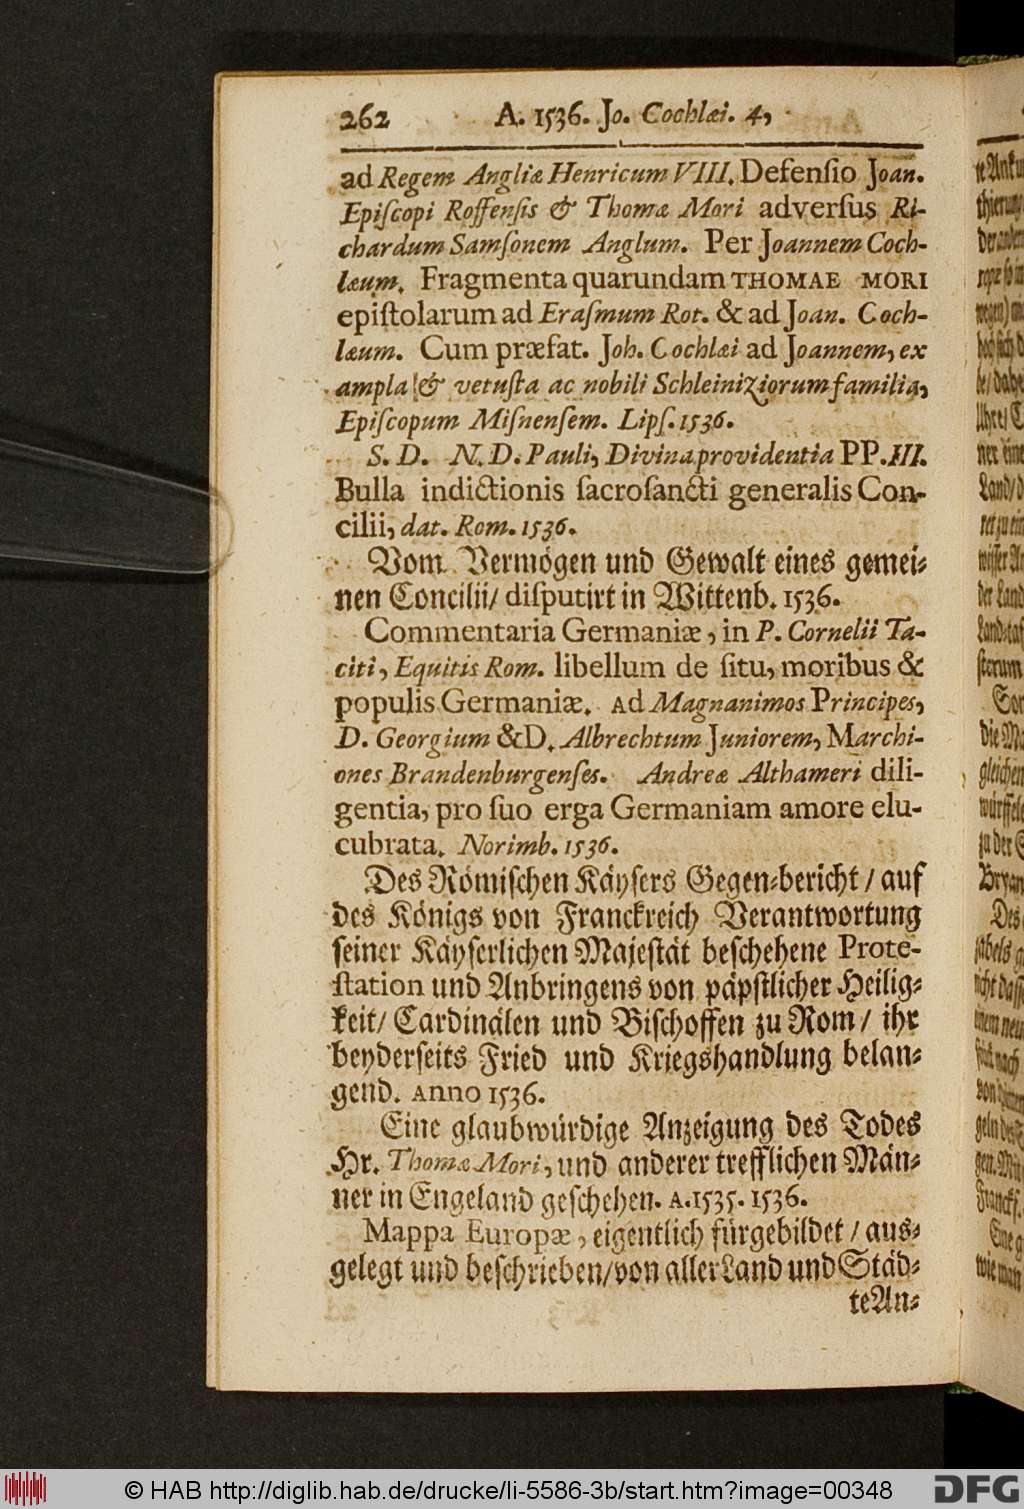 262 A. 1536. Jo. Cochlæi. 4,
ad Regem Angliæ Henricum VIII. Defensio Joan.
Episcopi Roffensis & Thomæ Mori adversus Ri-
chardum Samsonem Anglum. Per Joannem Coch-
læum. Fragmenta quarundam THOMAE MORI
epistolarum ad Erasmum Rot. & ad Joan. Coch-
læum. Cum præfat. Joh. Cochlæi ad Joannem, ex
ampla & vetusta ac nobili Schleiniziorum familia,
Episcopum Misnensem. Lips. 1536.
S. D. N. D. Pauli, Divina providentia PP. III.
Bulla indictionis sacrosancti generalis Con-
cilii, dat. Rom. 1536.
Vom Vermögen und Gewalt eines gemei-
nen Concilii/ disputirt in Wittenb. 1536.
Commentaria Germaniæ, in P. Cornelii Ta-
citi, Equitis Rom. libellum de situ, moribus &
populis Germaniæ. Ad Magnanimos Principes,
D. Georgium & D. Albrechtum Juniorem, Marchi-
ones Brandenburgenses. Andreæ Althameri dili-
gentia, pro suo erga Germaniam amore elu-
cubrata. Norimb. 1536.
Des Römischen Käysers Gegen-bericht / auf
des Königs von Franckreich Verantwortung
seiner Käyserlichen Majestät beschehene Prote-
station und Anbringens von päpstlicher Heilig-
keit/ Cardinälen und Bischoffen zu Rom / ihr
beyderseits Fried und Kriegshandlung belan-
gend. Anno 1536.
Eine glaubwürdige Anzeigung des Todes
Hr. Thomæ Mori, und anderer trefflichen Män-
ner in Engeland geschehen. A. 1535. 1536.
Mappa Europæ, eigentlich fürgebildet / aus-
gelegt und beschrieben/ von aller Land und Städ-
te An-
© HAB http://diglib.hab.de/drucke/li-5586-3b/start.htm?image=00348
DFG